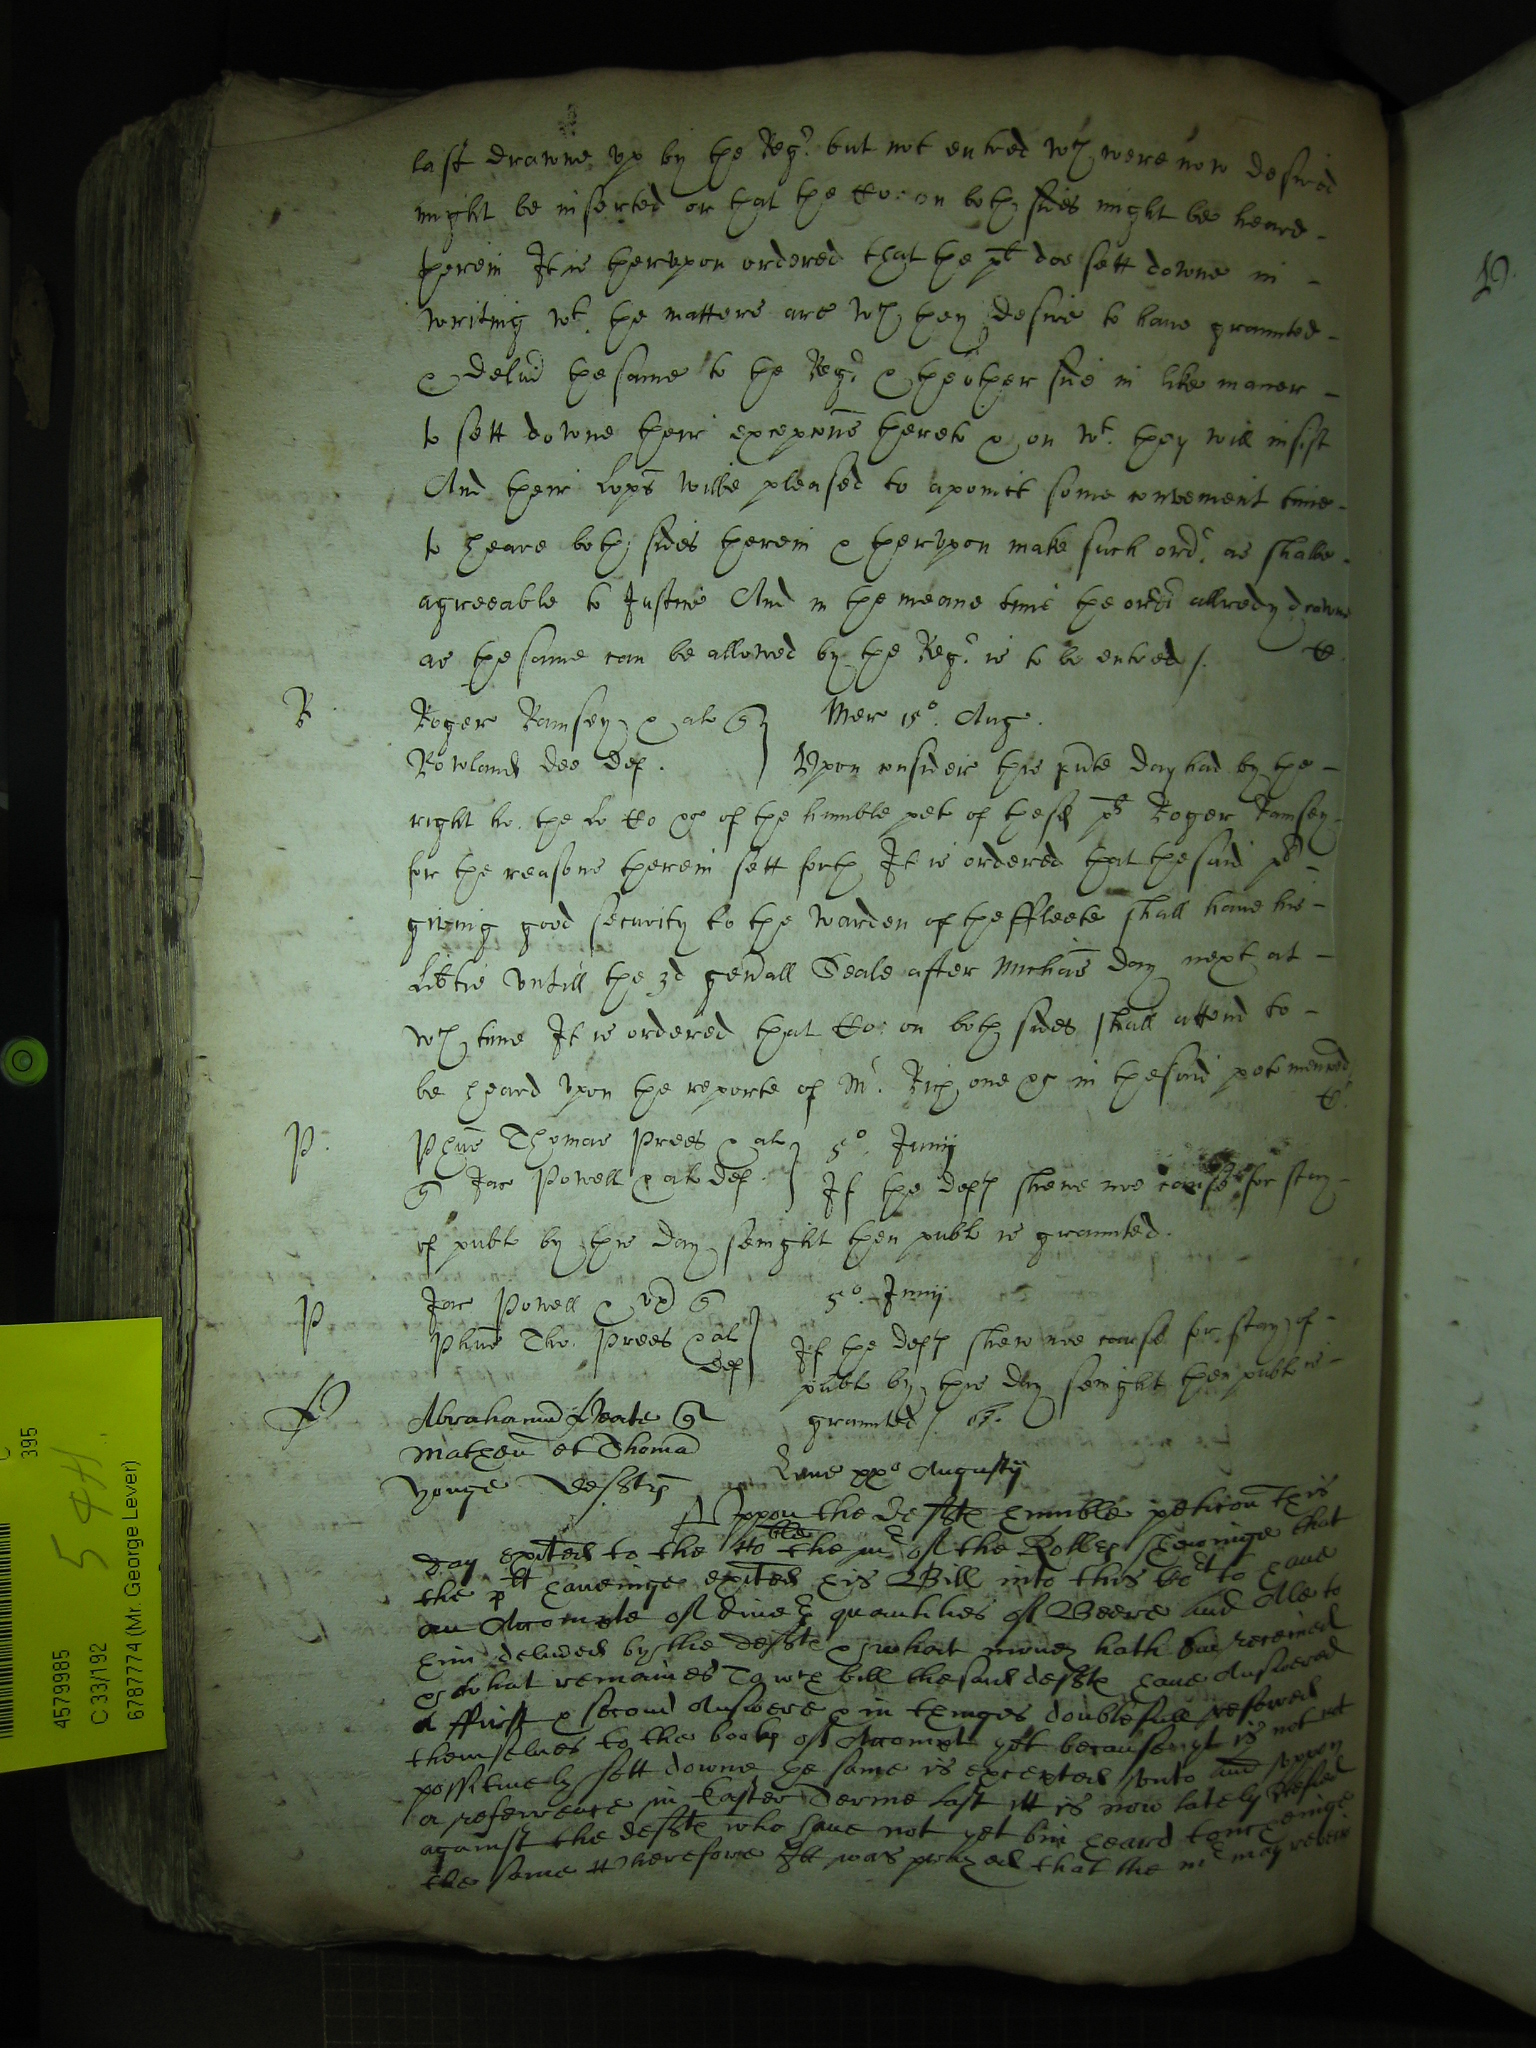 last drawne vp by the Regr. but not entred wch were now desired
might be inserted or that the Co: on both sides might be heard -
therein It is thervpon ordered that the plt doe sett downe in -
writing wt. the matters are wch they desire to haue graunted -
& deliu the same to the Regr. & the other side in like maner -
to sett downe their excepcons thereto & on wt. they will insist
And their Lopps wilbe pleased to apoint some convenient time -
to heare both sides therein & thervpon make such ordr. as shalbe -
agreeable to Justice And in the meane time the ordr allredy drawne
as the same can be allowed by the Regr. is to be entred /.
R
Roger Ramsey & al q
Mer 15o. Aug.
Rowland Dee def.
Vpon consider this pnte day had by the -
right ho. the Lo Co &c of the humble pet of the sd pl Roger Ramsey -
for the reasons therein sett forth It is ordered that the said pl -
giving good security to the Warden of the ffleete shall haue his -
Libtie vntill the 3d genall Seale after Michas day next at -
wch time It is ordered that Co: on both sides shall attend to -
be heard vpon the reporte of Mr. Rich one &c in the said pet menced
P.
Phus Thomas Prees & al
5o. Junij
q Jac Powell & al def.
If the defts shewe noe cause for stay -
of publ by this day senight then publ is graunted.
P
Jac Powell & vx q
5o. Junij
Phus Tho. Prees & al
def
If the defts shew noe cause for stay of -
publ by this day senight then publ is -
graunted /.
Abrahamus Neate q
Matheu et Thoma
Yonge defts
Lune xxo Augustij
Vppon the defts humble peticon this
day exited to the Ho ble the Mr of the Rolles shewinge that
the plt haueinge exited his Bill into this Court to haue
an Accompte of diuers quantities of Beere and Ale to
him deliuered by the defts & what money hath bin receiued
& what remaines To wch bill the said defts haue Answered
A ffirst & second Answere & in thinges doubtfull referred
themselues to the bookes of Accompt yet because yt is not
possitiuely sett downe the same is excepted vnto And vppon
a referrence in Easter Terme last itt is now lately
against the defts who haue not yet bin heard touchinge
the same Therefore Itt was prayed that the mr may
4579985
C 33/192
6787774 (Mr. George Lever)
395